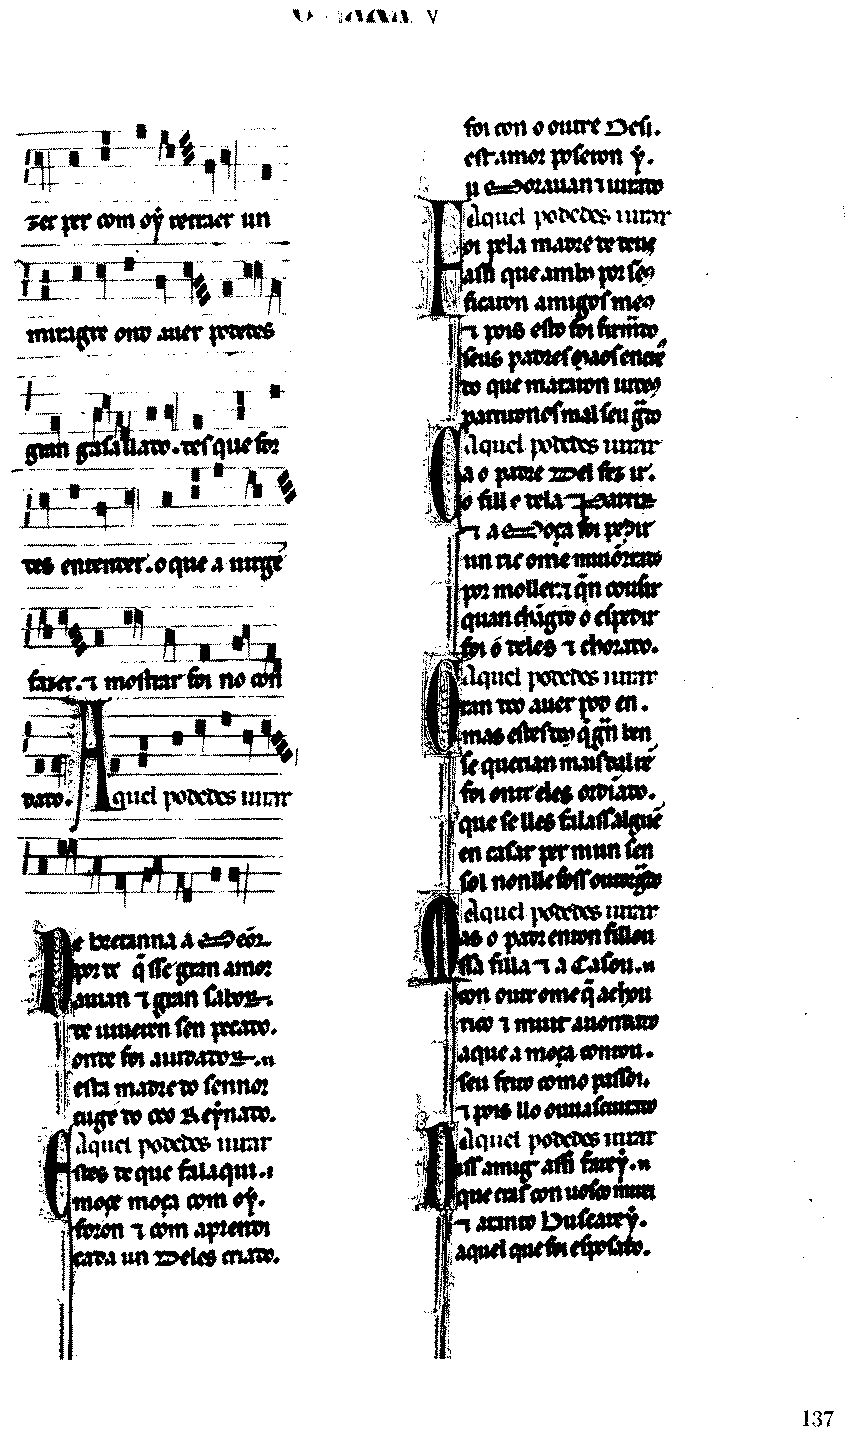 zer per com oý retraer un
miragre onde auer podedes
gran gasallado. des que for
des entender. o que a uirgẽ
fazer. ⁊ mostrar foi no con
dado. Aquel podedes iurar
De bretanna a Mẽor.
por de q̃ sse gran amor
auian ⁊ gran sabor.
de uiueren sen pecado.
onde foi aiudador.
esta madre do sennor
que do ceo Reýnado.
Aquel podedes iurar
Estes de que falaqui.
moçe moça com oý.
foron ⁊ com aprendi
cada un Deles criado.
foi con o outre Desi.
est amor poseron ý.
u Morauan ⁊ uiuido
Aquel podedes iurar
Foi pela madre de deus
assi que ambos por seos
ficaron amigos meos
⁊ pois esto foi firmado
seus padres
to que mataron
mal seu grado
Aquel podedes iurar
Ca o padre Del fez ir.
o fill e dela partir
⁊ a Moça foi pedir
un ric ome muiõrrado
por moller. ⁊ q̃n cousir
quan chãgido o espedir
foi o deles ⁊ chorado.
Aquel podedes iurar
Oran doo auer pod en.
mas estes dous q̃ gran ben
se querian mais dultrẽ
foi ontr eles ordĩado.
que se lles falass alguẽ
en casar per niun sen
sol nonlle foss outorgado
Aquel podedes iurar
Mas o padr enton fillou
ssa filla ⁊ a casou.
con outr ome q̃ achou
rico ⁊ muit auondado
aque a moça contou.
seu feito como passou.
⁊ pois llo ouuascuitado
Aquel podedes iurar
Diss amig assi farey.
que cras con uosco mouerey
⁊ a Buscarey.
aquel que foi esposado.
137